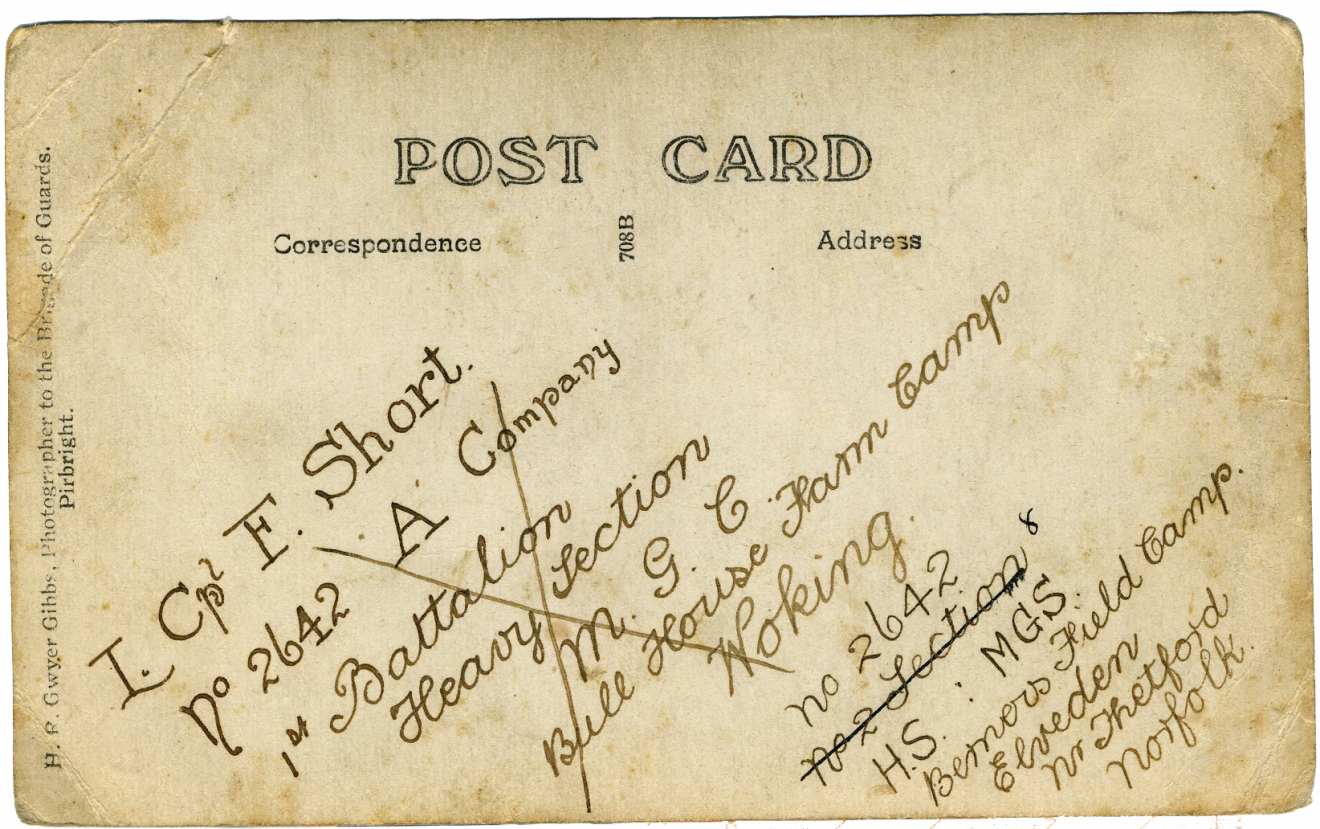 POST CARD
Correspondence
708B
Address
H. R. Gwyer Gibbs, Photographer to the Brigade of Guards.
Pirbright.
L. Cpl F. Short.
No 2642 A. Company
1st Battalion
Heavy Section
M. G. C
Bull House Farm Camp
Woking.
No 2642
No 2 Section 8
H.S. : MGS.
Berners Field Camp.
Elveden
Nr Thetford
Norfolk.